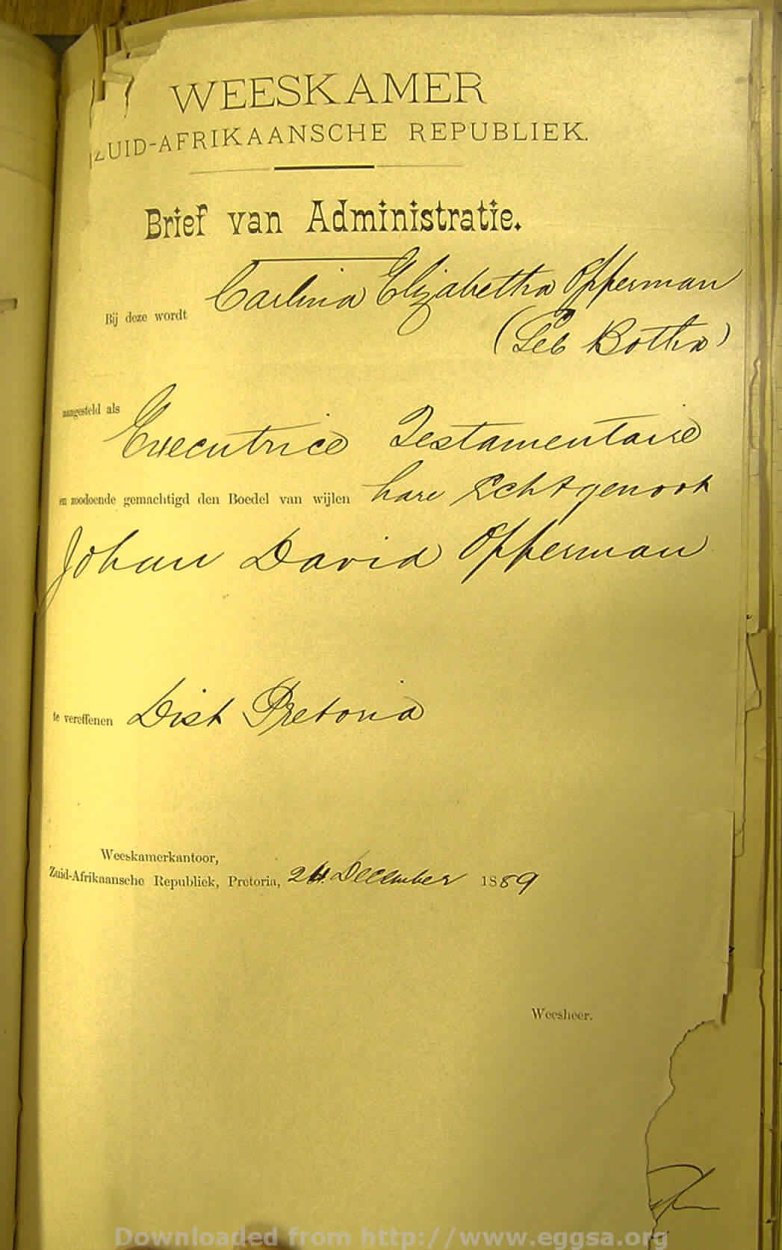 WEESKAMER
ZUID-AFRIKAANSCHE REPUBLIEK.
Brief van Administratie.
Bij deze wordt Carlina Elizabetha Opperman
(Geb Botha)
aangesteld als
Executrice Testamentaire
en zoodoende gemachtigd den Boedel van wijlen hare Echtgenoot
Johan David Opperman
te vereffenen Dist Pretoria
Weeskamerkantoor,
Zuid-Afrikaansche Republiek, Pretoria, 24 December 1889
Weesheer.
Downloaded from http://www.eggsa.org